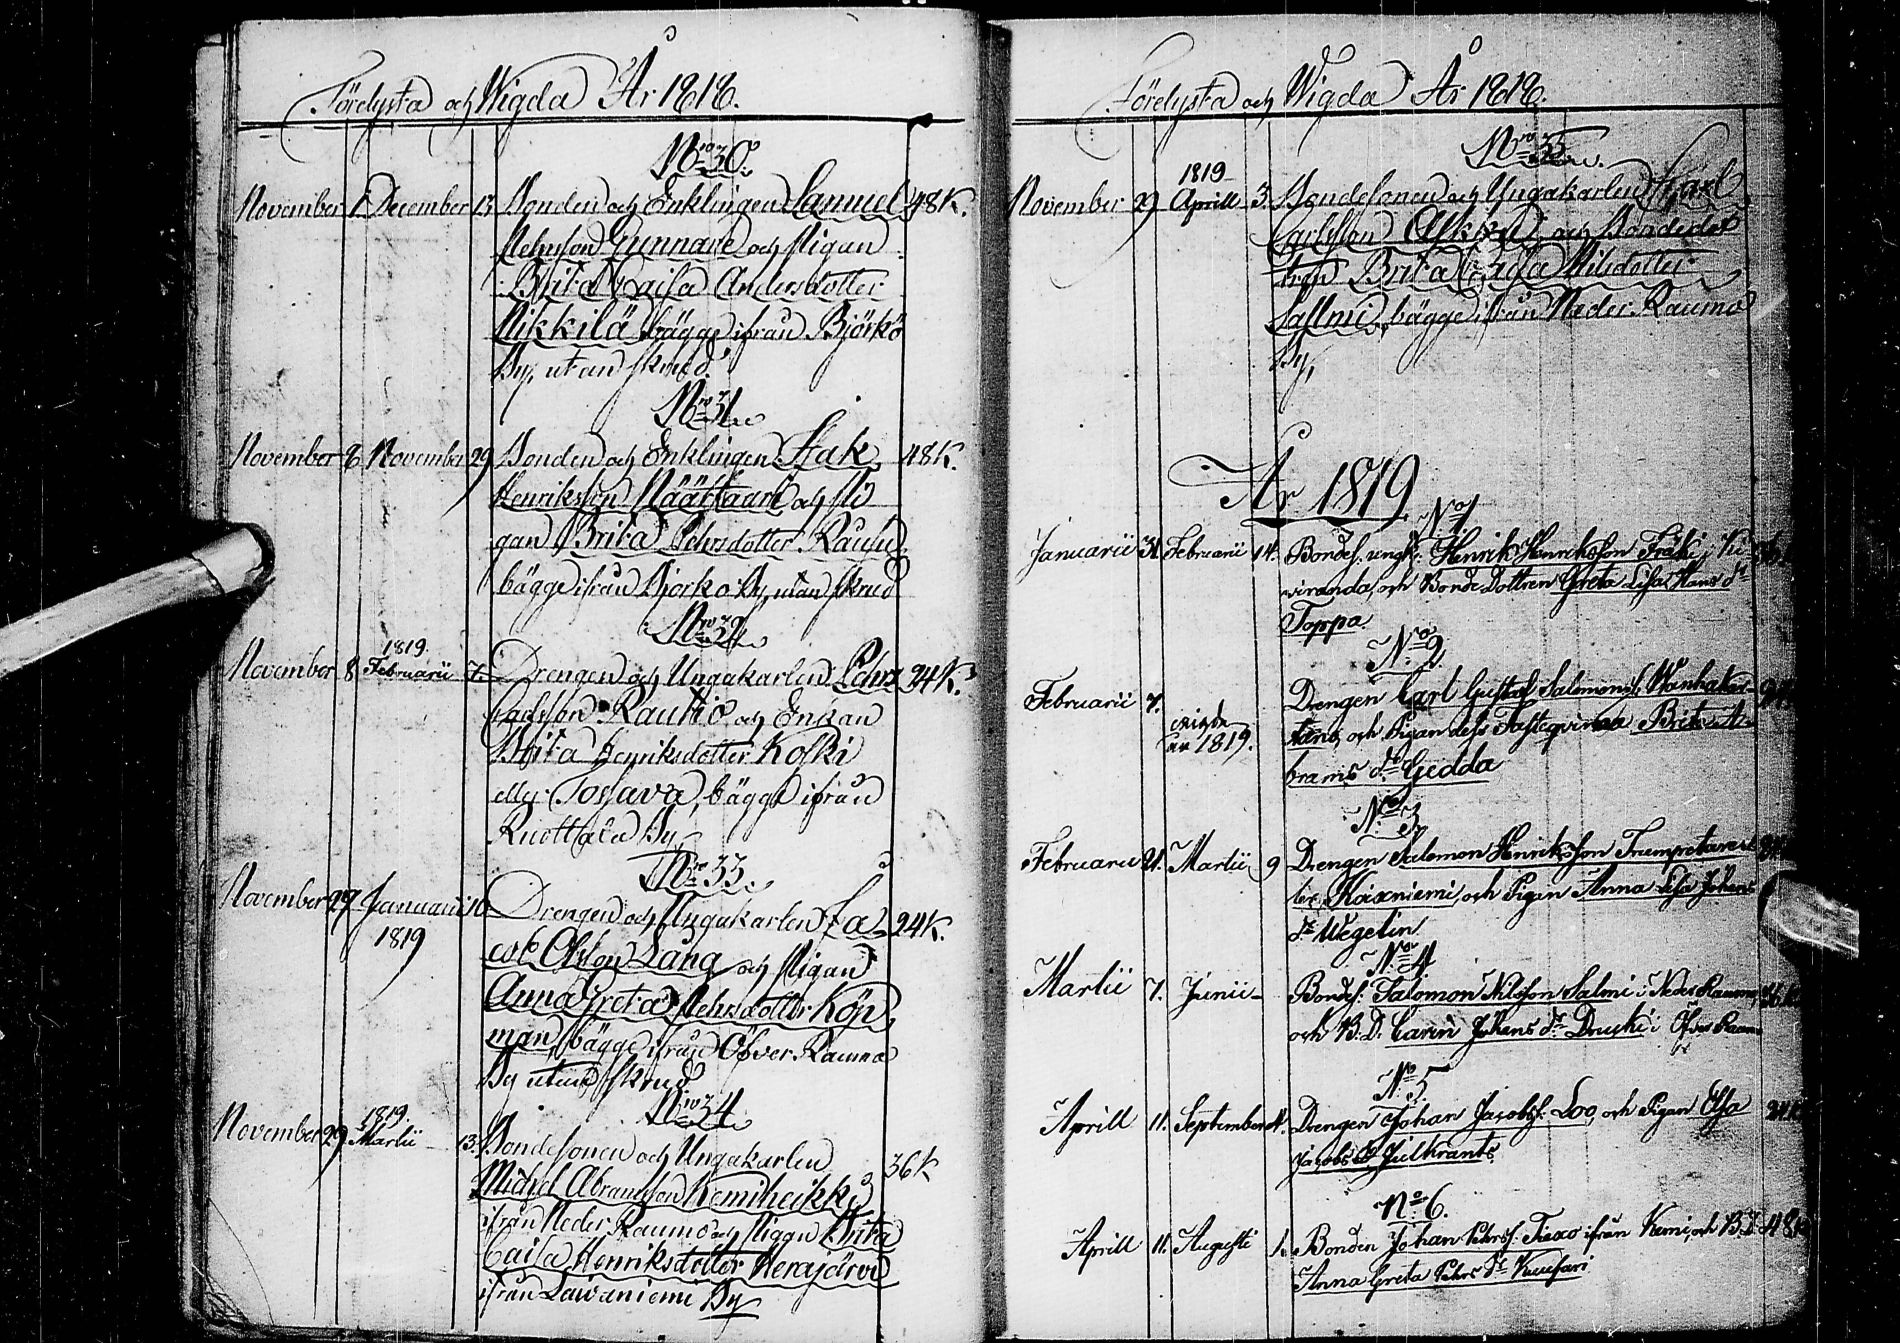 Förelysta och Wigda År 1818.
Nro 30.
November 1 December 13 Bonden och Enklingen Samuel 48 K.
Pehrsson Gunnare och Pigan
Brita Caisa Andersdotter
Nikkilä bägge ifrån Björkö
By, utan skrud.
Nro 31.
November 8 November 29 Bonden och Enklingen Isak 48 K.
Henriksson Määttaare och Pi
gan Brita Pehrsdotter Rausu
bägge ifrån Björkö By, utan skrud
Nro 32.
1819.
November 8 Februarii 7. Drengen och Ungakarlen Pehr 24 K.
Carlsson Rautio och Enkan
Brita Henriksdotter Koski
eller Torfava, bägge ifrån
Ruottala By
Nro 33.
November 29 Januarii 10 Drengen och Ungakarlen Ja- 24 K.
1819
cob Olsson Lång och Pigan
Anna Greta Pehrsdotter Köp
man bägge ifrån Öfver Rauma
By utan skrud
Nro 34.
1819.
November 29 Martii 13. Bondesonen och Ungakarlen
36 K
Michel Abramsson Kemiheikki
ifrån Neder Raumo och Pigan Brita
Caisa Henriksdotter Herajärvi
ifrån Lawaniemi By
Förelysta och Wigda År 1818.
Nro 35
1819
November 29 Aprill 3. Bondesonen och Ungakarlen Carl
Carlsson och Bondedot
tren Brita Caisa Nilsdotter
Sallmi, bägge ifrån Neder Raumo
By,
År 1819
No 1
Januarii 31. Februarii 14. Bondes. ungk. Henrik Henriksson Fräki i Ku
iviranda, och Bonde Dottren Greta Lisa Hans dr
Toppa
No 2.
Februarii 7. Drengen Carl Gustaf Salomonss. Wanhaker
wigda
år 1819.
tano, och Pigan dess Fästeqvinna Brita A
brams dr Gedda
No 3.
Februarii 21. Martii 9 Drengen Salomon Henriksson Trumpetare el
ler Koixniemi, och Pigan Anna Lisa Johans
dr Wegelin
No 4
Martii 7. Junii Bondes. Salomon Nilsson Salmi i Neder Raumo, 36 K
och B. D. Carin Johans dr Drucki i Öfver Raumo
No 5
Aprill 11. September 4. Drengen Johan Jacobss. Loo, och Pigan Elsa 24 K
Jacobs dr Juilkrants
No 6.
Aprill 11. Augusti 1. Bonden Johan Pehrss. Tiexo ifrån Kemi, och B. D. 48 K
Anna Greta Pehrs dr Kuusari